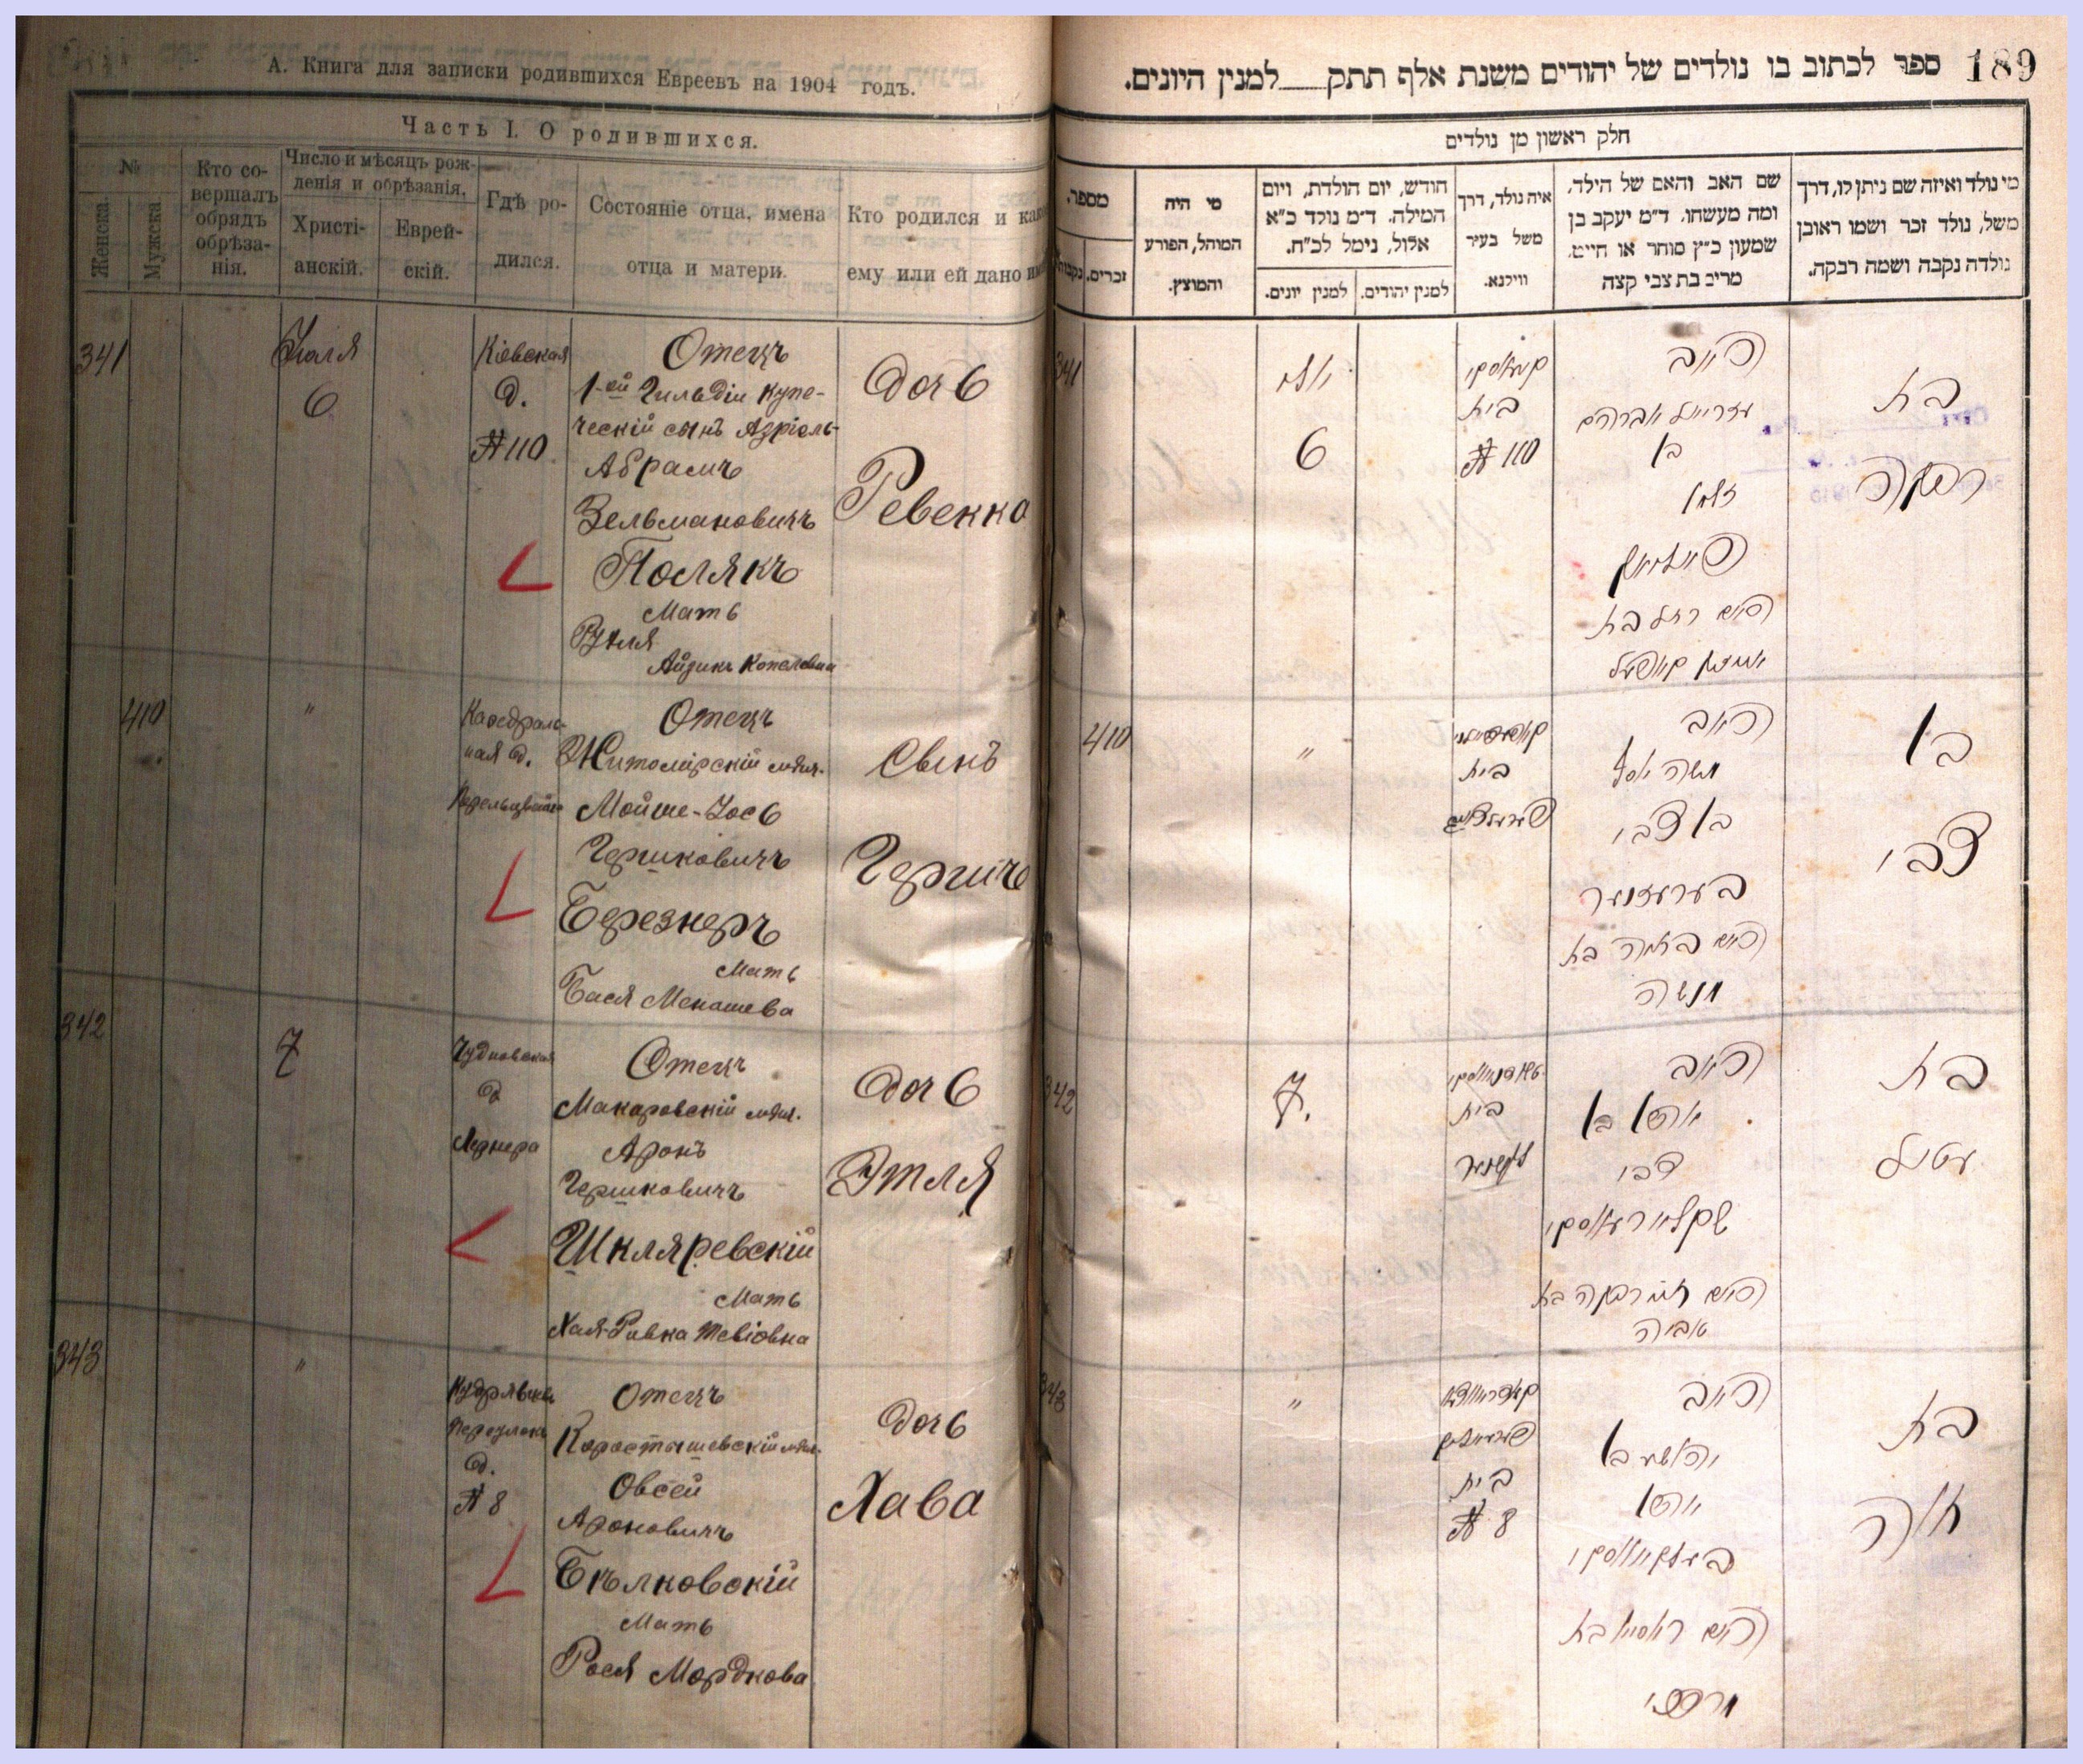 А. Книга для записки родившихся Евреевъ на 1904 годъ.
Часть I. О родившихся.
№
Женска.
Мужска
Кто со-
вершалъ
обрядъ
обрѣза-
нія.
Число и мѣсяцъ рож-
денія и обрѣзанія.
Христі-
анскій.
Еврей-
скій.
Гдѣ ро-
дился.
Состояніе отца, имена
отца и матери.
Кто родился и как
ему или ей дано им
341
Іюля
6
Кіевская
д.
№ 110
Отецъ
1-ой Гильдіи купе-
ческій сынъ Азріель-
Абрамъ
Зельмановичъ
Полякъ
Мать
Рухля
Айзикъ Копелевна
Дочь
Ревекка
410
"
Каѳедраль-
ная д.
Отецъ
Житомірскій мѣщ.
Мойше-Іось
Гершковичъ
Березнеръ
Мать
Бася Менашева
Сынъ
Гершъ
342
7
Чудновская
д
Лернера
Отецъ
Макаровскій мѣщ.
Аронъ
Гершковичъ
Шкляревскій
Мать
Хая-Ривка Тевіовна
Дочь
Этля
343
"
Кудрявскій
переулокъ
д.
№ 8
Отецъ
Коростышевскій мѣщ.
Овсей
Ароновичъ
Бѣлковскій
Мать
Рося Мордкова
Дочь
Хава
189
ספר לכתוב בו נולדים של יהודים משנת אלף תתק למנין היונים.
חלק ראשון מן נולדים
מי נולד ואיזה שם ניתן לו, דרך
משל, נולד זכר ושמו ראובן
נולדה נקבה ושמה רבקה.
שם האב והאם של הילד,
ומה מעשהו. ד״מ יעקב בן
שמעון כ״ץ סוחר או חייט,
מרים בת צבי קצה
איה נולד, דרך
משל בעיר
ווילנא.
חודש, יום הולדת, ויום
המילה. ד״מ נולד כ״א
אלול, נימל לכ״ח.
למנין יהודים.
למנין יונים.
מי היה
המוהל, הפורע
והמוצץ.
מספר.
זכרים.
נקבות
בת
רבקה
האב
עזריאל אברהם
בן
זלמן
פאליאק
האם רחל בת
אייזיק קאפעל
קיעווסקי
בית
№ 110
יולי
6
341
בן
צבי
האב
משה יוסף
בן צבי
בערעזנער
האם באשה בת
מנשה
בית
"
410
בת
עטיל
האב
אהרן בן
צבי
שקליארעווסקי
האם חיה רבקה בת
טוביה
טשודנאווסקי
בית
לערנער
7.
342
בת
חוה
האב
יהושע בן
אהרן
בעלקאווסקי
האם ראסיא בת
מרדכי
בית
№ 8
"
343